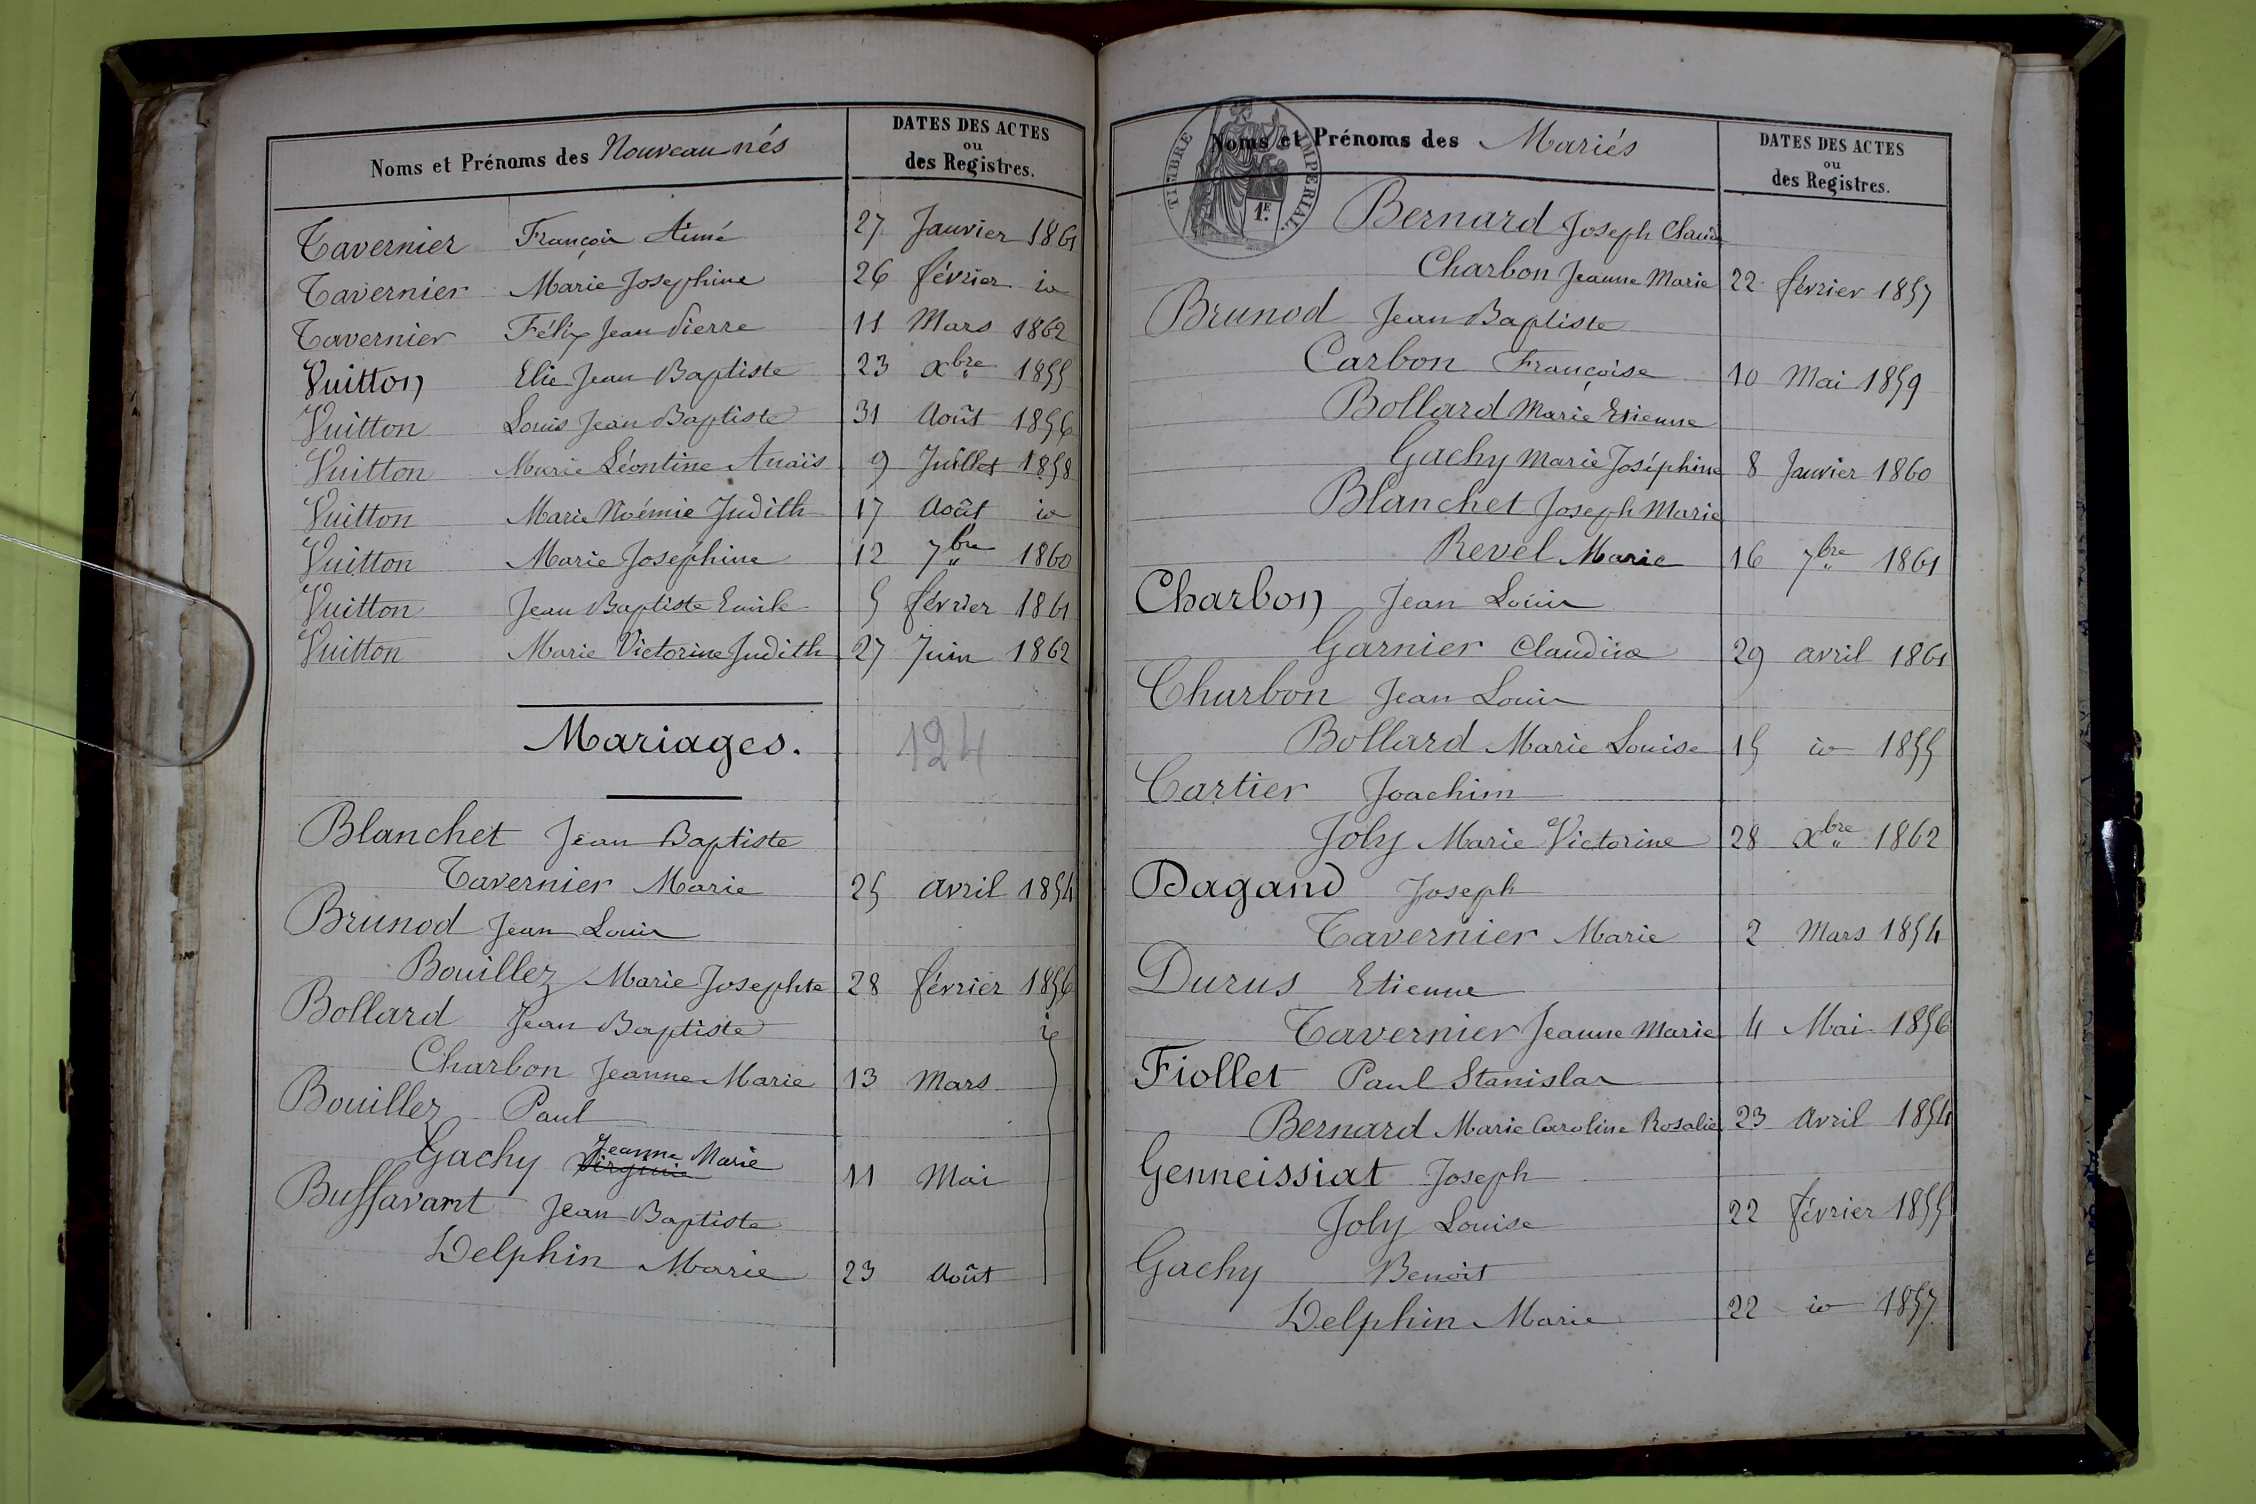 Noms et Prénoms des Nouveau nés
DATES DES ACTES
ou
des Registres.
Tavernier François Aimé 27 Janvier 1861
Tavernier Marie Josephine 26 février id
Tavernier Félix Jean Pierre 11 Mars 1862
Vuitton Elie Jean Baptiste 23 Xbre 1855
Vuitton Louis Jean Baptiste 31 Août 1856
Vuitton Marie Léontine Anaïs 9 Juillet 1858
Vuitton Marie Noémie Judith 17 Août id
Vuitton Marie Josephine 12 7bre 1860
Vuitton Jean Baptiste Emile 5 février 1861
Vuitton Marie Victorine Judith 27 Juin 1862
Mariages.
124
Blanchet Jean Baptiste
Tavernier Marie 25 avril 1854
Brunod Jean Louis
Bouillez Marie Josephte 28 février 1856
Bollard Jean Baptiste
Charbon Jeanne Marie 13 Mars
Bouillez Paul
Gachy Virginie Jeanne Marie 11 Mai
Buffavant Jean Baptiste
Delphin Marie 23 Août
Noms et Prénoms des Mariés
DATES DES ACTES
ou
des Registres.
TIMBRE IMPERIAL
1E.
Bernard Joseph Claude
Charbon Jeanne Marie 22 février 1857
Brunod Jean Baptiste
Carbon Françoise 10 Mai 1859
Bollard Marie Etienne
Gachy Marie Joséphine 8 Janvier 1860
Blanchet Joseph Marie
Revel Marie 16 7bre 1861
Charbon Jean Louis
Garnier Claudine 29 avril 1861
Charbon Jean Louis
Bollard Marie Louise 15 id 1855
Cartier Joachim
Joly Marie Victorine 28 Xbre 1862
Dagand Joseph
Tavernier Marie 2 Mars 1854
Durus Etienne
Tavernier Jeanne Marie 4 Mai 1856
Fiollet Paul Stanislas
Bernard Marie Caroline Rosalie 23 avril 1854
Genneissiat Joseph
Joly Louise 22 février 1855
Gachy Benoit
Delphin Marie 22 id 1857